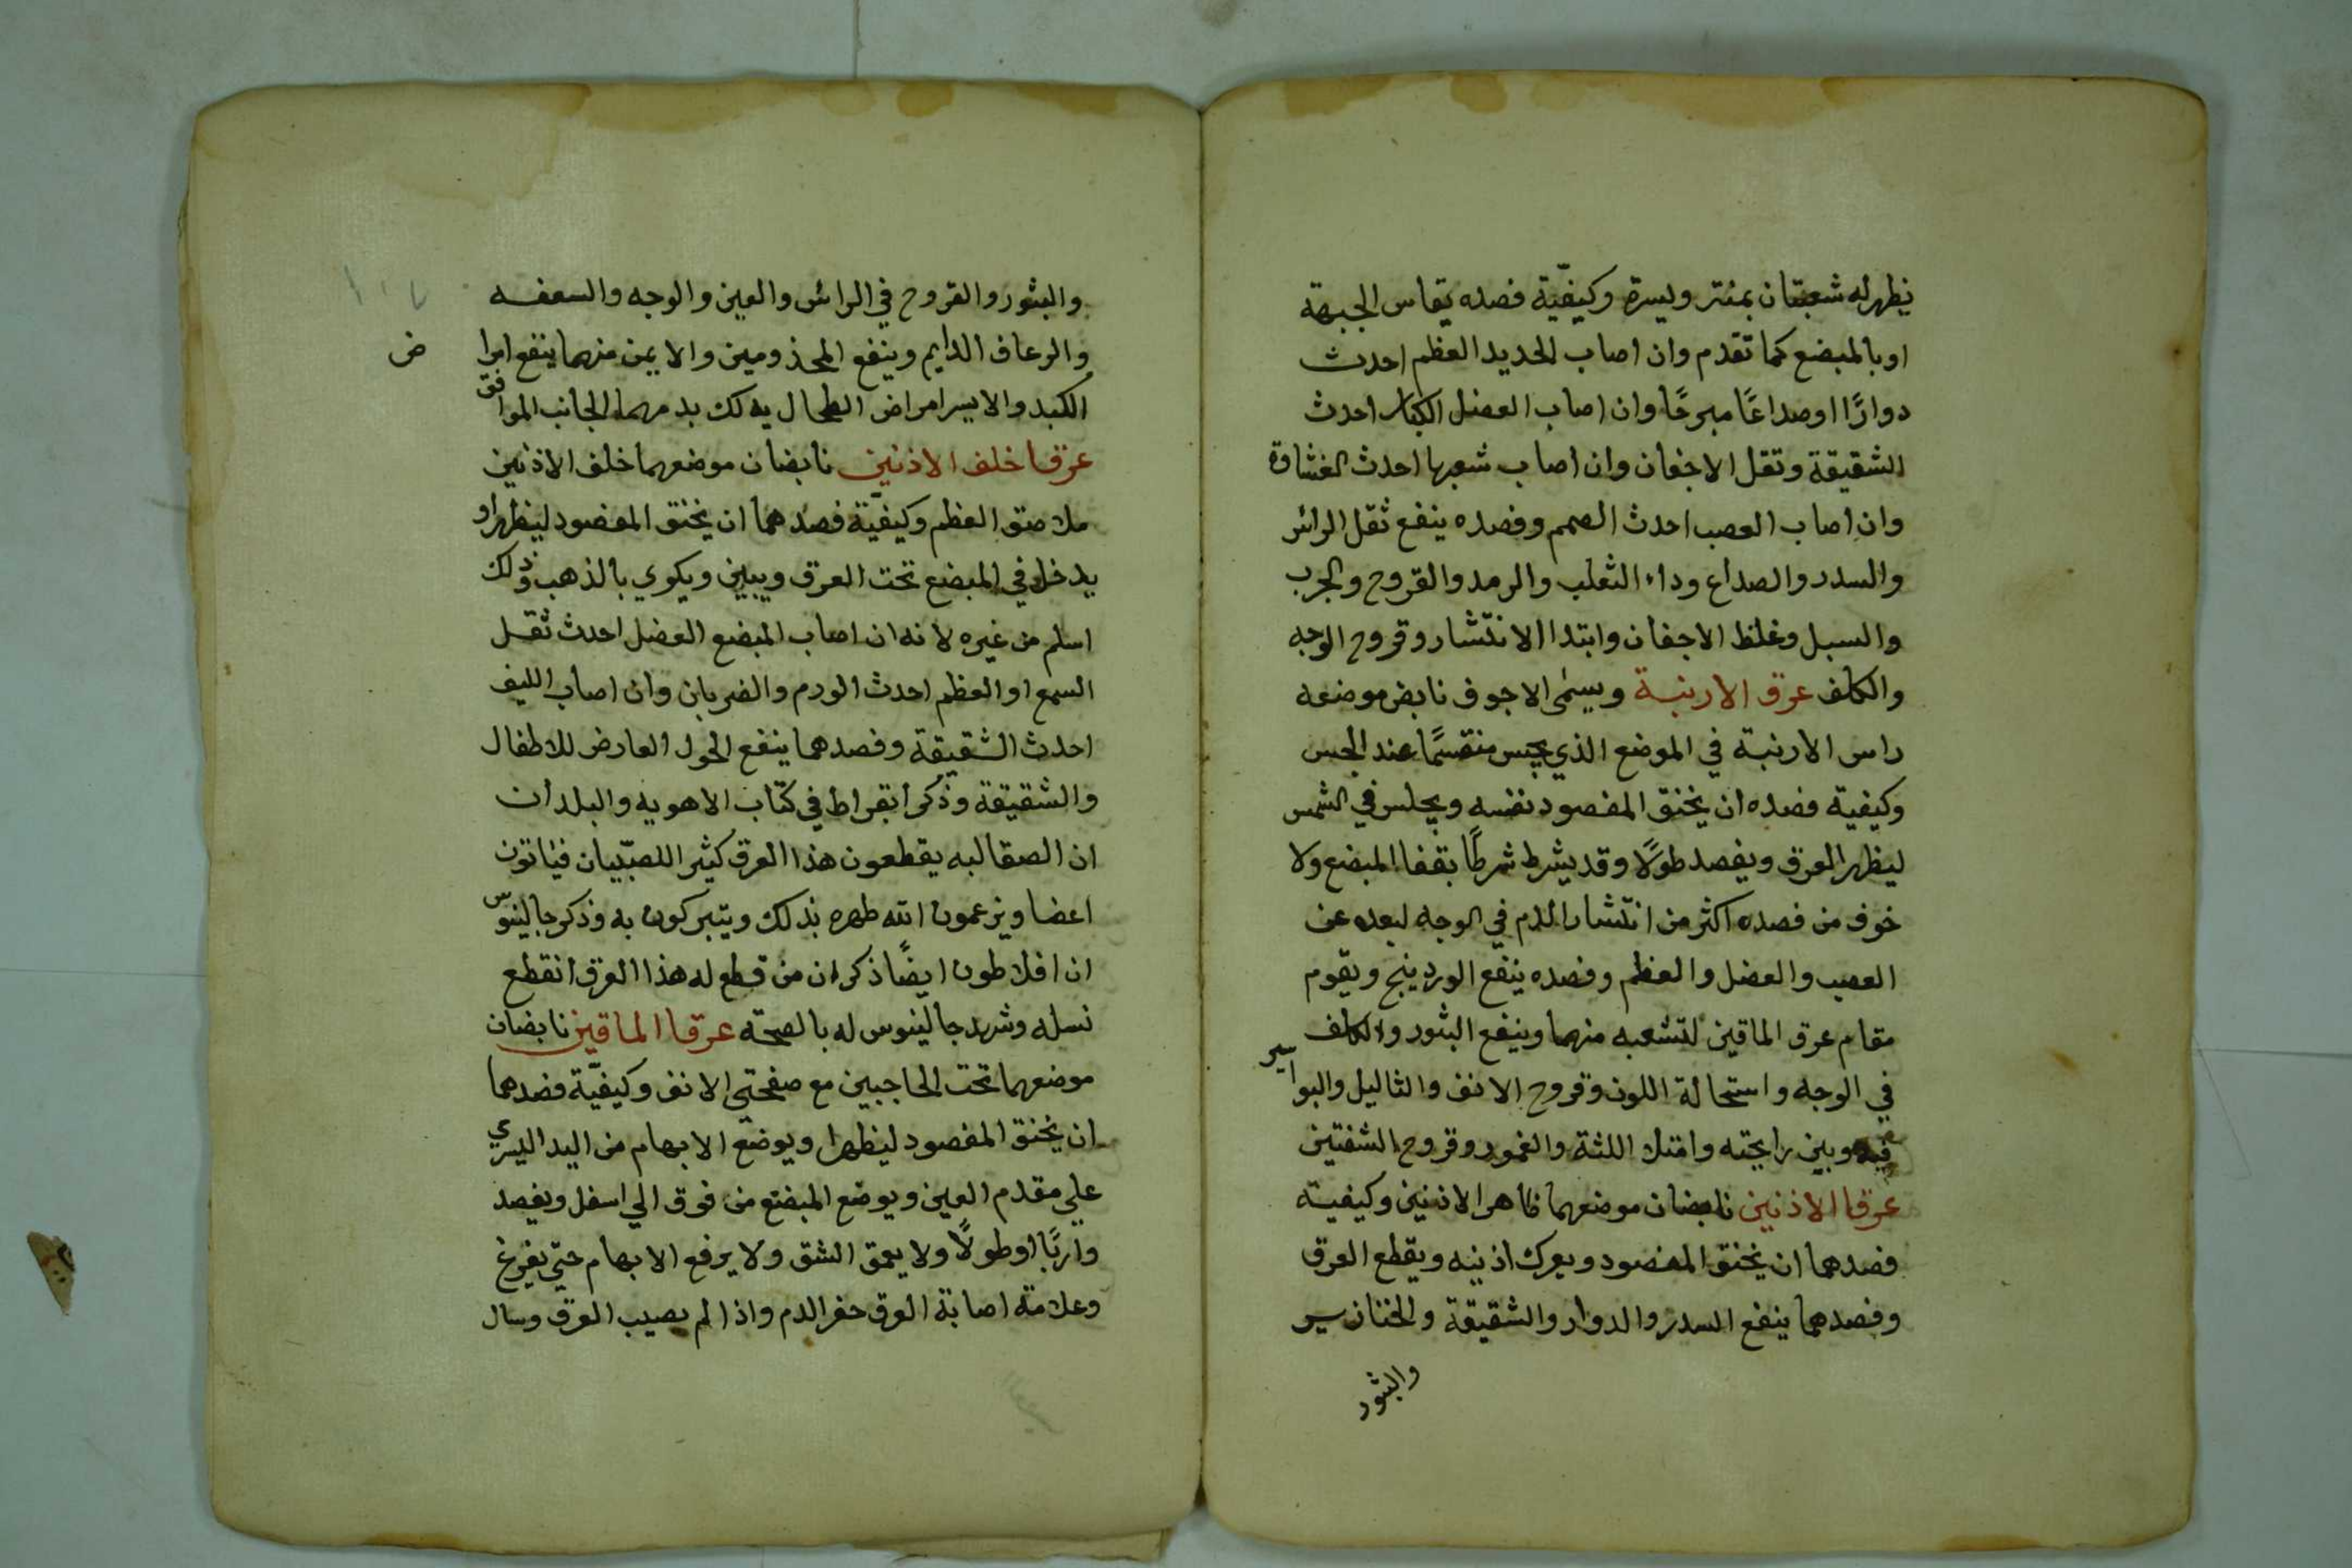 يظهر له شعبتان يمنتر ويسرة وكيفيّة فصده بقاس الجبهة
او بالمبضع كما تقدم وان اصاب الحديد العظم احدث
دوارًا او صداعًا مبرحًا وان اصاب العضل الكبار احدث
الشقيقة وثقل الاجفان وان اصاب شعبها احدث الغشاوة
وان اصاب العصب احدث الصمم وفصده ينفع ثقل الرائس
والسدر والصداع وداء الثعلب والرمد والقروح والجرب
والسبل وغلظ الاجفان وابتدا الانتشار وقروح الوجه
والكلف عرق الارنبة ويسمى الاجوف نابض موضعه
راس الارنبة في الموضع الذي يجس منقسمًا عند الجس
وكيفية فصده ان يخنق المفصود نفسه ويجلس في الشمس
ليظهر العرق ويفصد طولًا وقد يشرط شرطًا بقفا المبضع ولا
خوف من فصده اكثر من انتشار الدم في الوجه لبعده عن
العصب والعضل والعظم وفصده ينفع الوردينج ويقوم
مقام عرق الماقين لتشعبه منهما وينفع البثور والكلف
في الوجه واستحالة اللون وقروح الانف والثاليل والبواسير
فيه وبين رايحته وامتلا اللثة والغمور وقروح الشفتين
عرقا الاذنين نابضان موضعهما ظاهر الاذنين وكيفيته
فصدهما ان يخنق المفصود ويعرك اذنيه ويقطع العرق
وفصدهما ينفع السدر والدوار والشقيقة والخنازير
والبثور
والبثور والقروح في الرائس والعين والوجه والسعفه
والرعاف الدايم وينفع المجذومين والايمن منهما ينفع امرا
ض
الكبد والايسر امراض الطحال يدلك بدمهما الجانب الموافق
عرقا خلف الاذنين نابضان موضعهما خلف الاذنين
ملاصق العظم وكيفيّة فصدهما ان يخنق المفصود ليظهرا و
يدخل في المبضع تحت العرق ويبين ويكوي بالذهب وذلك
اسلم من غيره لانه ان اصاب المبضع العضل احدث ثقل
السمع او العظم احدث الورم والضربان وان اصاب الليف
احدث الشقيقة وفصدهما ينفع الحول العارض للاطفال
والشقيقة وذكر ابقراط في كتاب الاهويه والبلدان
ان الصقالبه يقطعون هذا العرق كثير اللصبّيان فياتون
اعضا ويزعمون انّه طهره بذلك ويتبركون به وذكر جالينوس
ان افلاطون ايضًا ذكر ان من قطع له هذا العرق انقطع
نسله وشهد جالينوس له بالصحّه عرقا الماقين نابضان
موضعهما تحت الحاجبين مع صفحتي الانف وكيفيّة فصدهما
ان يخنق المفصود ليظهرا ويوضع الابهام من اليد اليسري
علي مقدم العين ويوضع المبضع من فوق الي اسفل ويفصد
واربًا او طولًا ولا يعمق الشق ولا يرفع الابهام حتي يفرغ
وعلامة اصابة العرق حفر الدم واذا لم يصيب العرق وسال